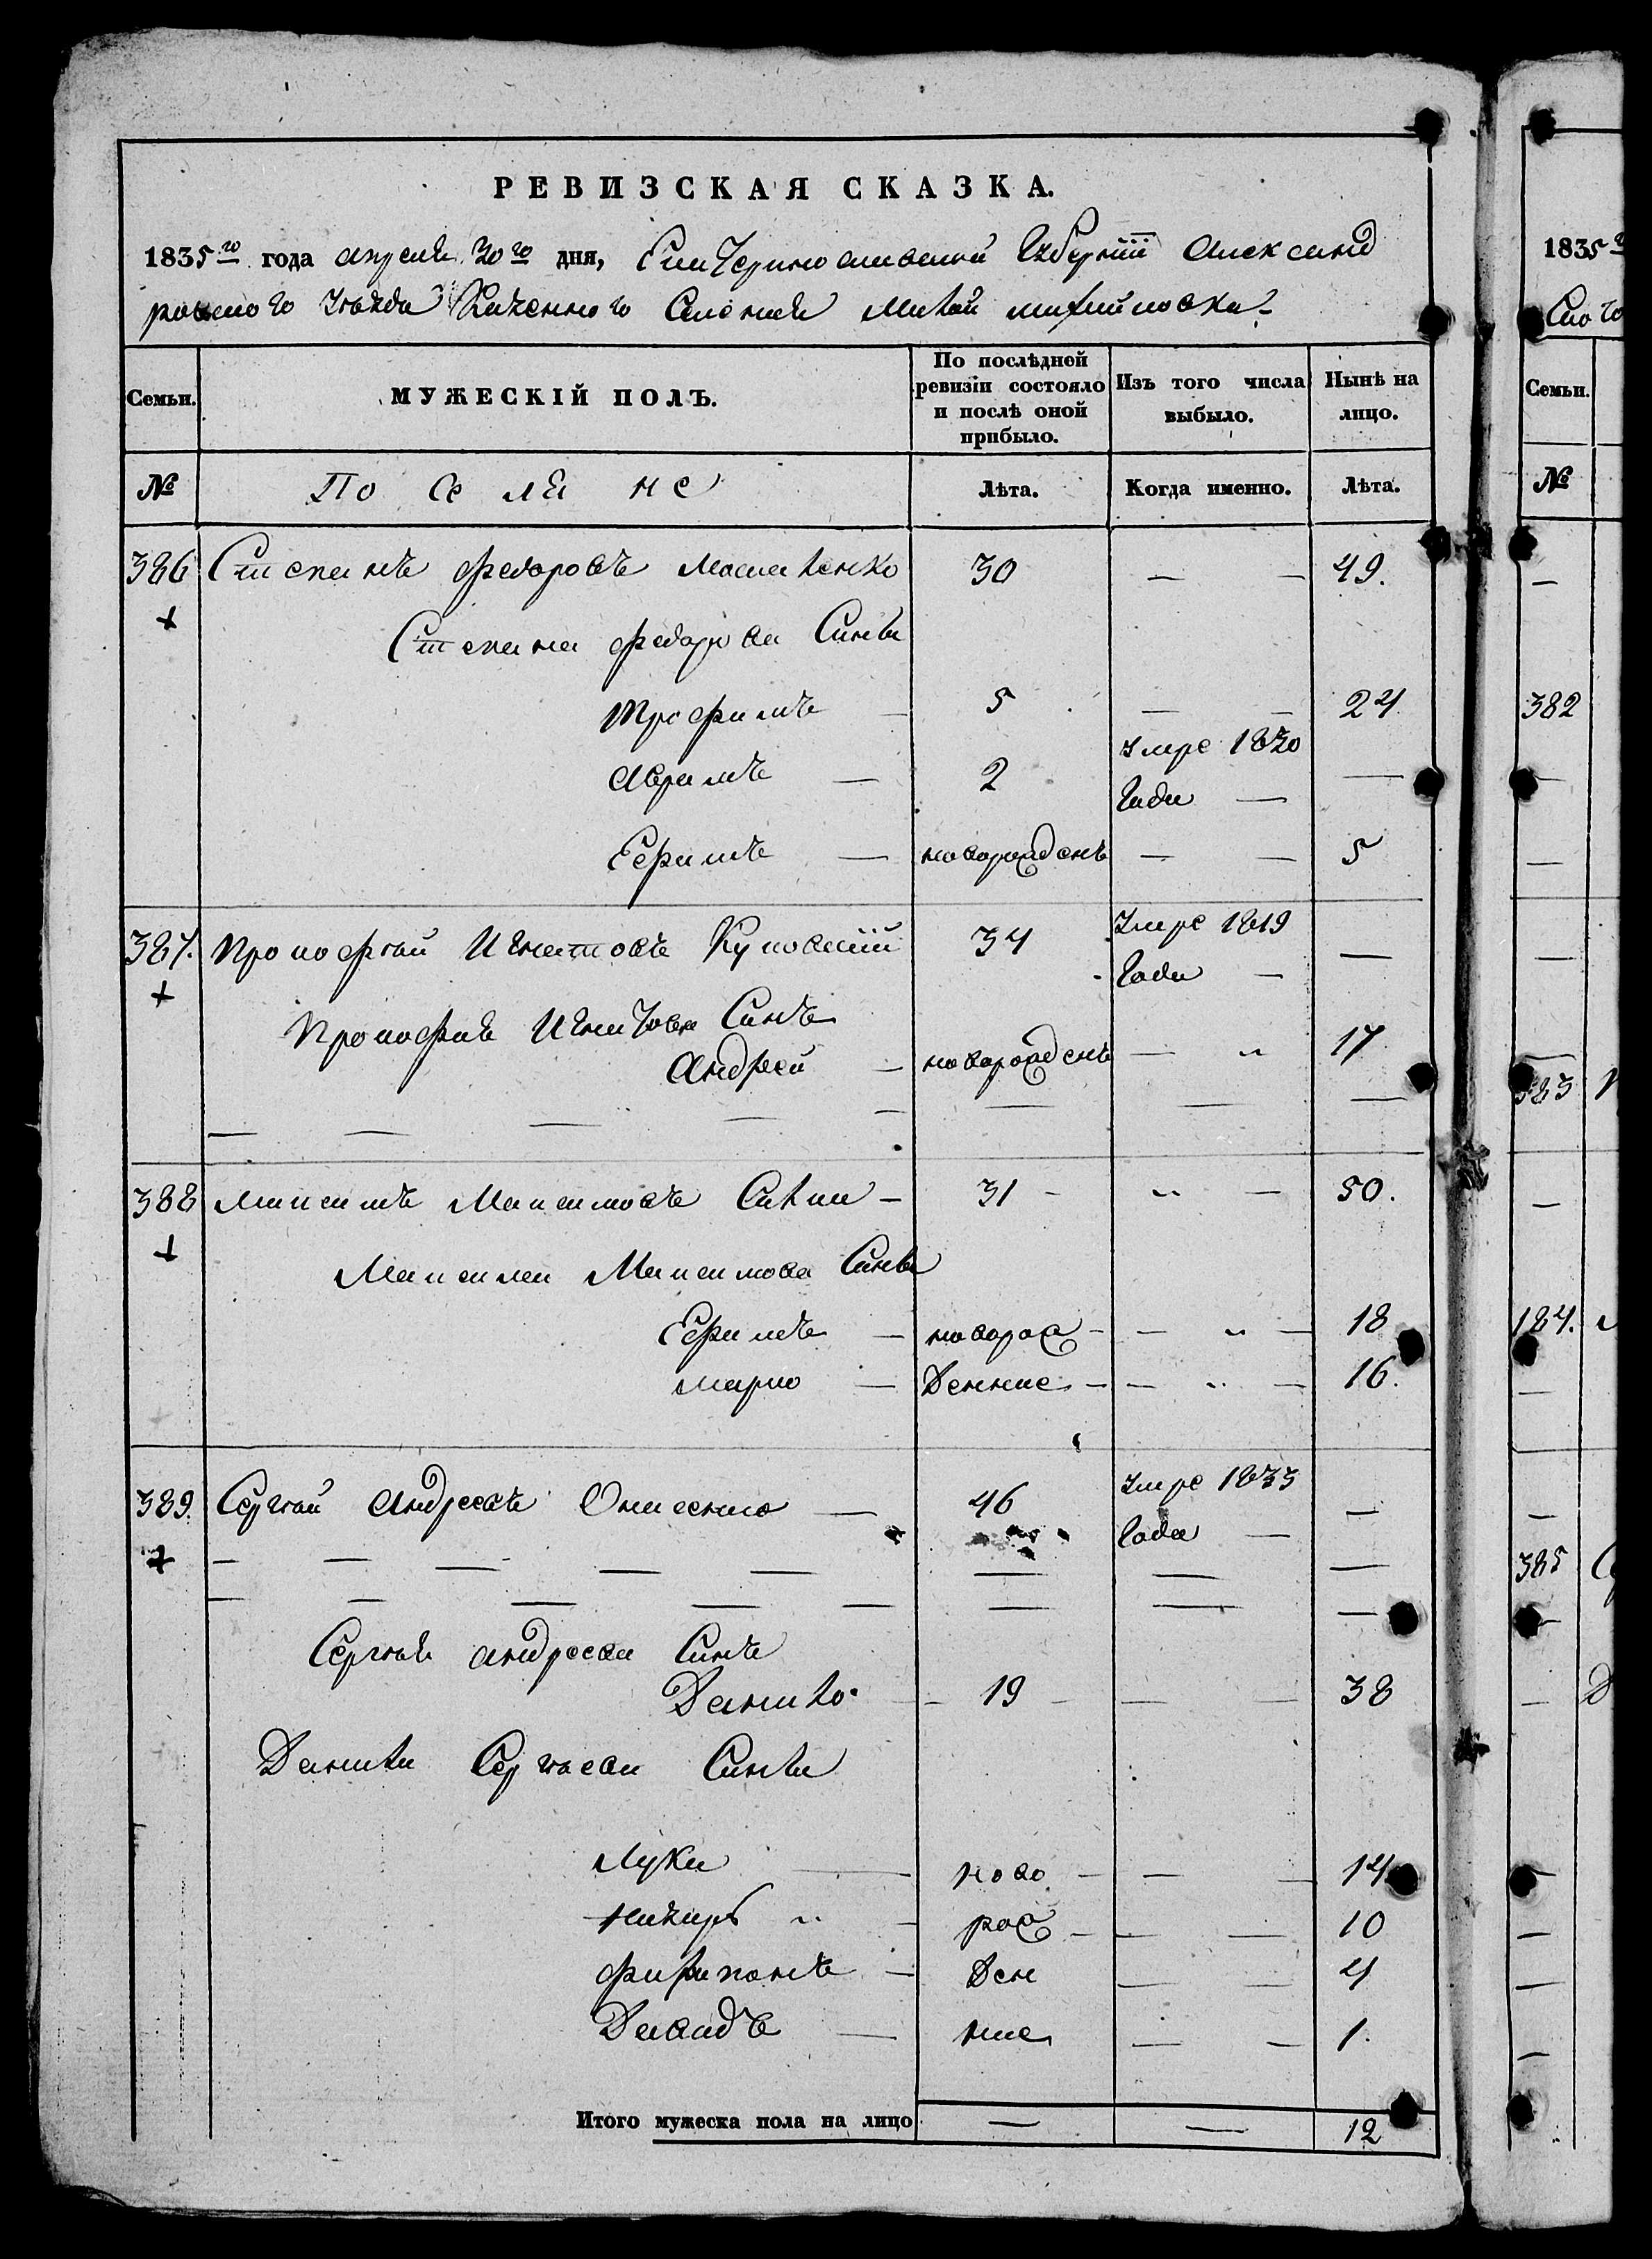 РЕВИЗСКАЯ СКАЗКА.
1835го года апреля 30го дня, Екатеринославской Губернiи Александ
ровского Уезда Казенного Селенiя Малой михайловки
Семьи. МУЖЕСКIЙ ПОЛЪ. По послѣдней ревизiи состояло и послѣ оной прибыло. Изъ того числа выбыло. Нынѣ на лицо.
№ Поселяне Лѣта. Когда именно. Лѣта.
386 Степанъ федоровъ 30 — — 49.
Степана федорова Сини
Трофимъ — 5 — — 24
Аврамъ — 2 Умре 1830 Года — —
Ефимъ — новорожденъ — — 5
387. Прокофий Игнатовъ 34 Умре 1819 Года — —
Прокофия Игнатова Синъ
Андрей — новорожденъ — „ 17
— — — — — — — —
388 Максимъ Максимовъ 31 — „ — 50.
Максима Максимова Сини
Ефимъ — новорож — — „ — 18
марко — Денние — — „ — 16.
389. Сергѣй Андреевъ Онисенко — 46 Умре 1833 Года — —
— — — — — — — —
— — — — — — — —
Сергѣя андреева Синъ
Данило — 19 — — — 38
Данила Сергѣева Сини
Лука — ново — — — 14
„ — рож — — — 10
— Ден — — 4
Давидъ — ние — — 1.
Итого мужеска пола на лицо — — 12
1835
Семьи.
№
382
383
184.
385